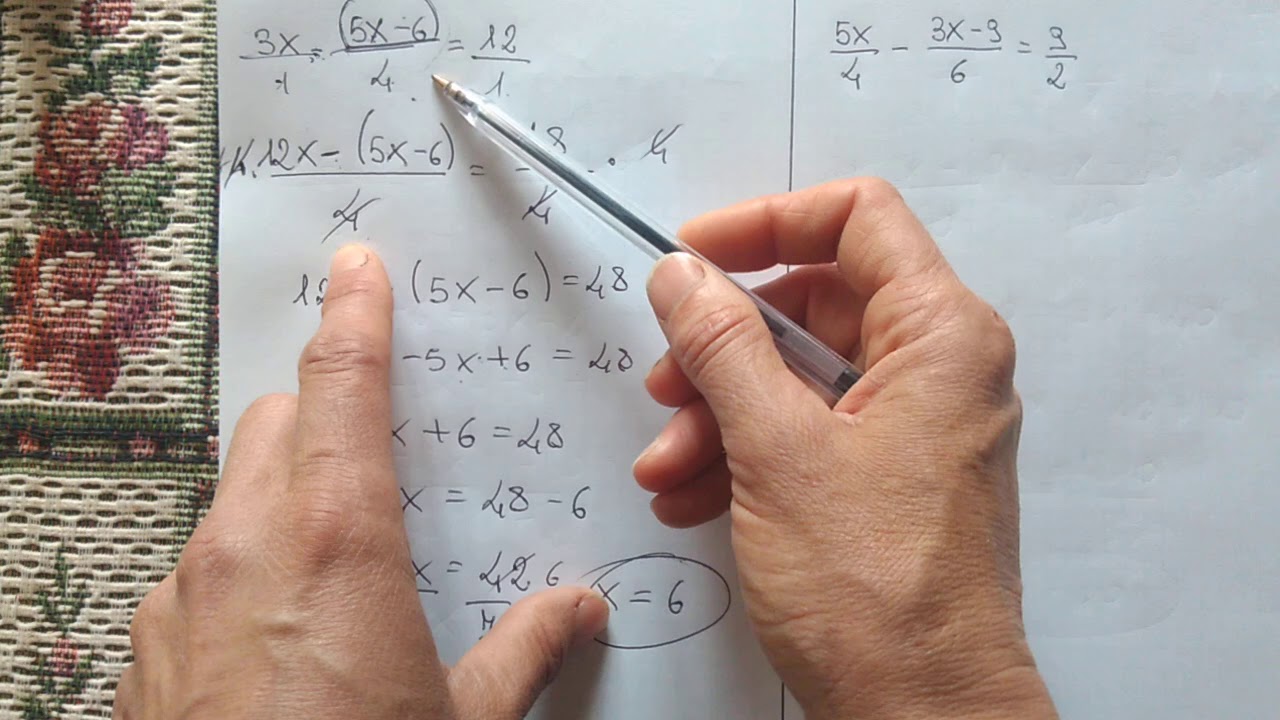 3x/1 - (5x-6)/4 = 12/1
4. 12x - (5x-6)/4 = 48/4 . 4
12 (5x-6) = 48
-5x+6 = 48
x + 6 = 48
x = 48 - 6
x = 42/7 6
x = 6
5x/4 - 3x-9/6 = 9/2